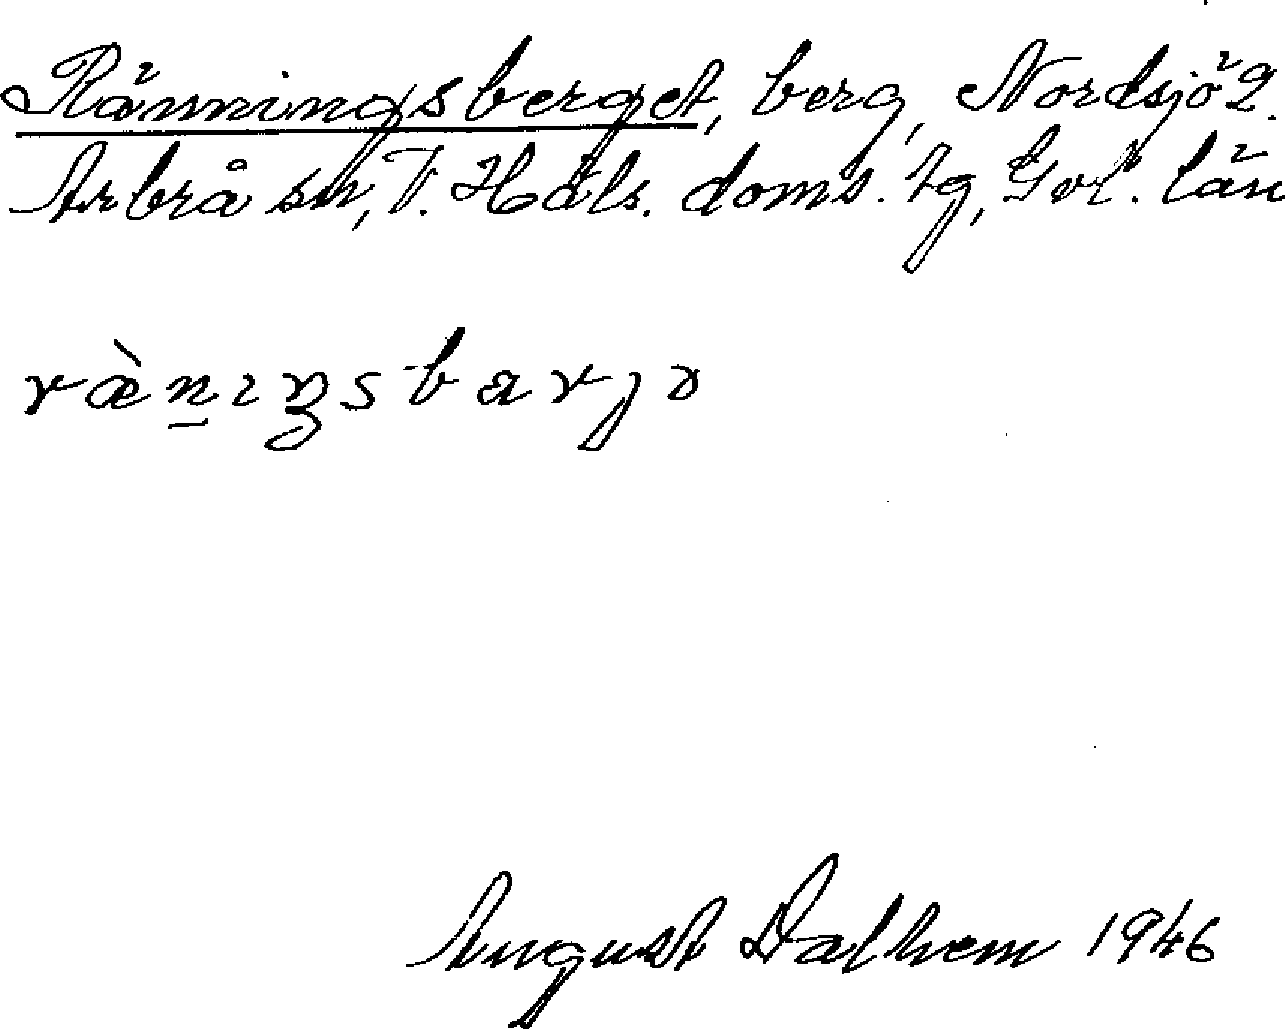 Ränningsberget, berg, Nordsjö 2.
Arbrå sn, V. Häls. doms. tg, Gvl. län
ræ̀n̠ıŋsbarȷə
August Dalhem 1946